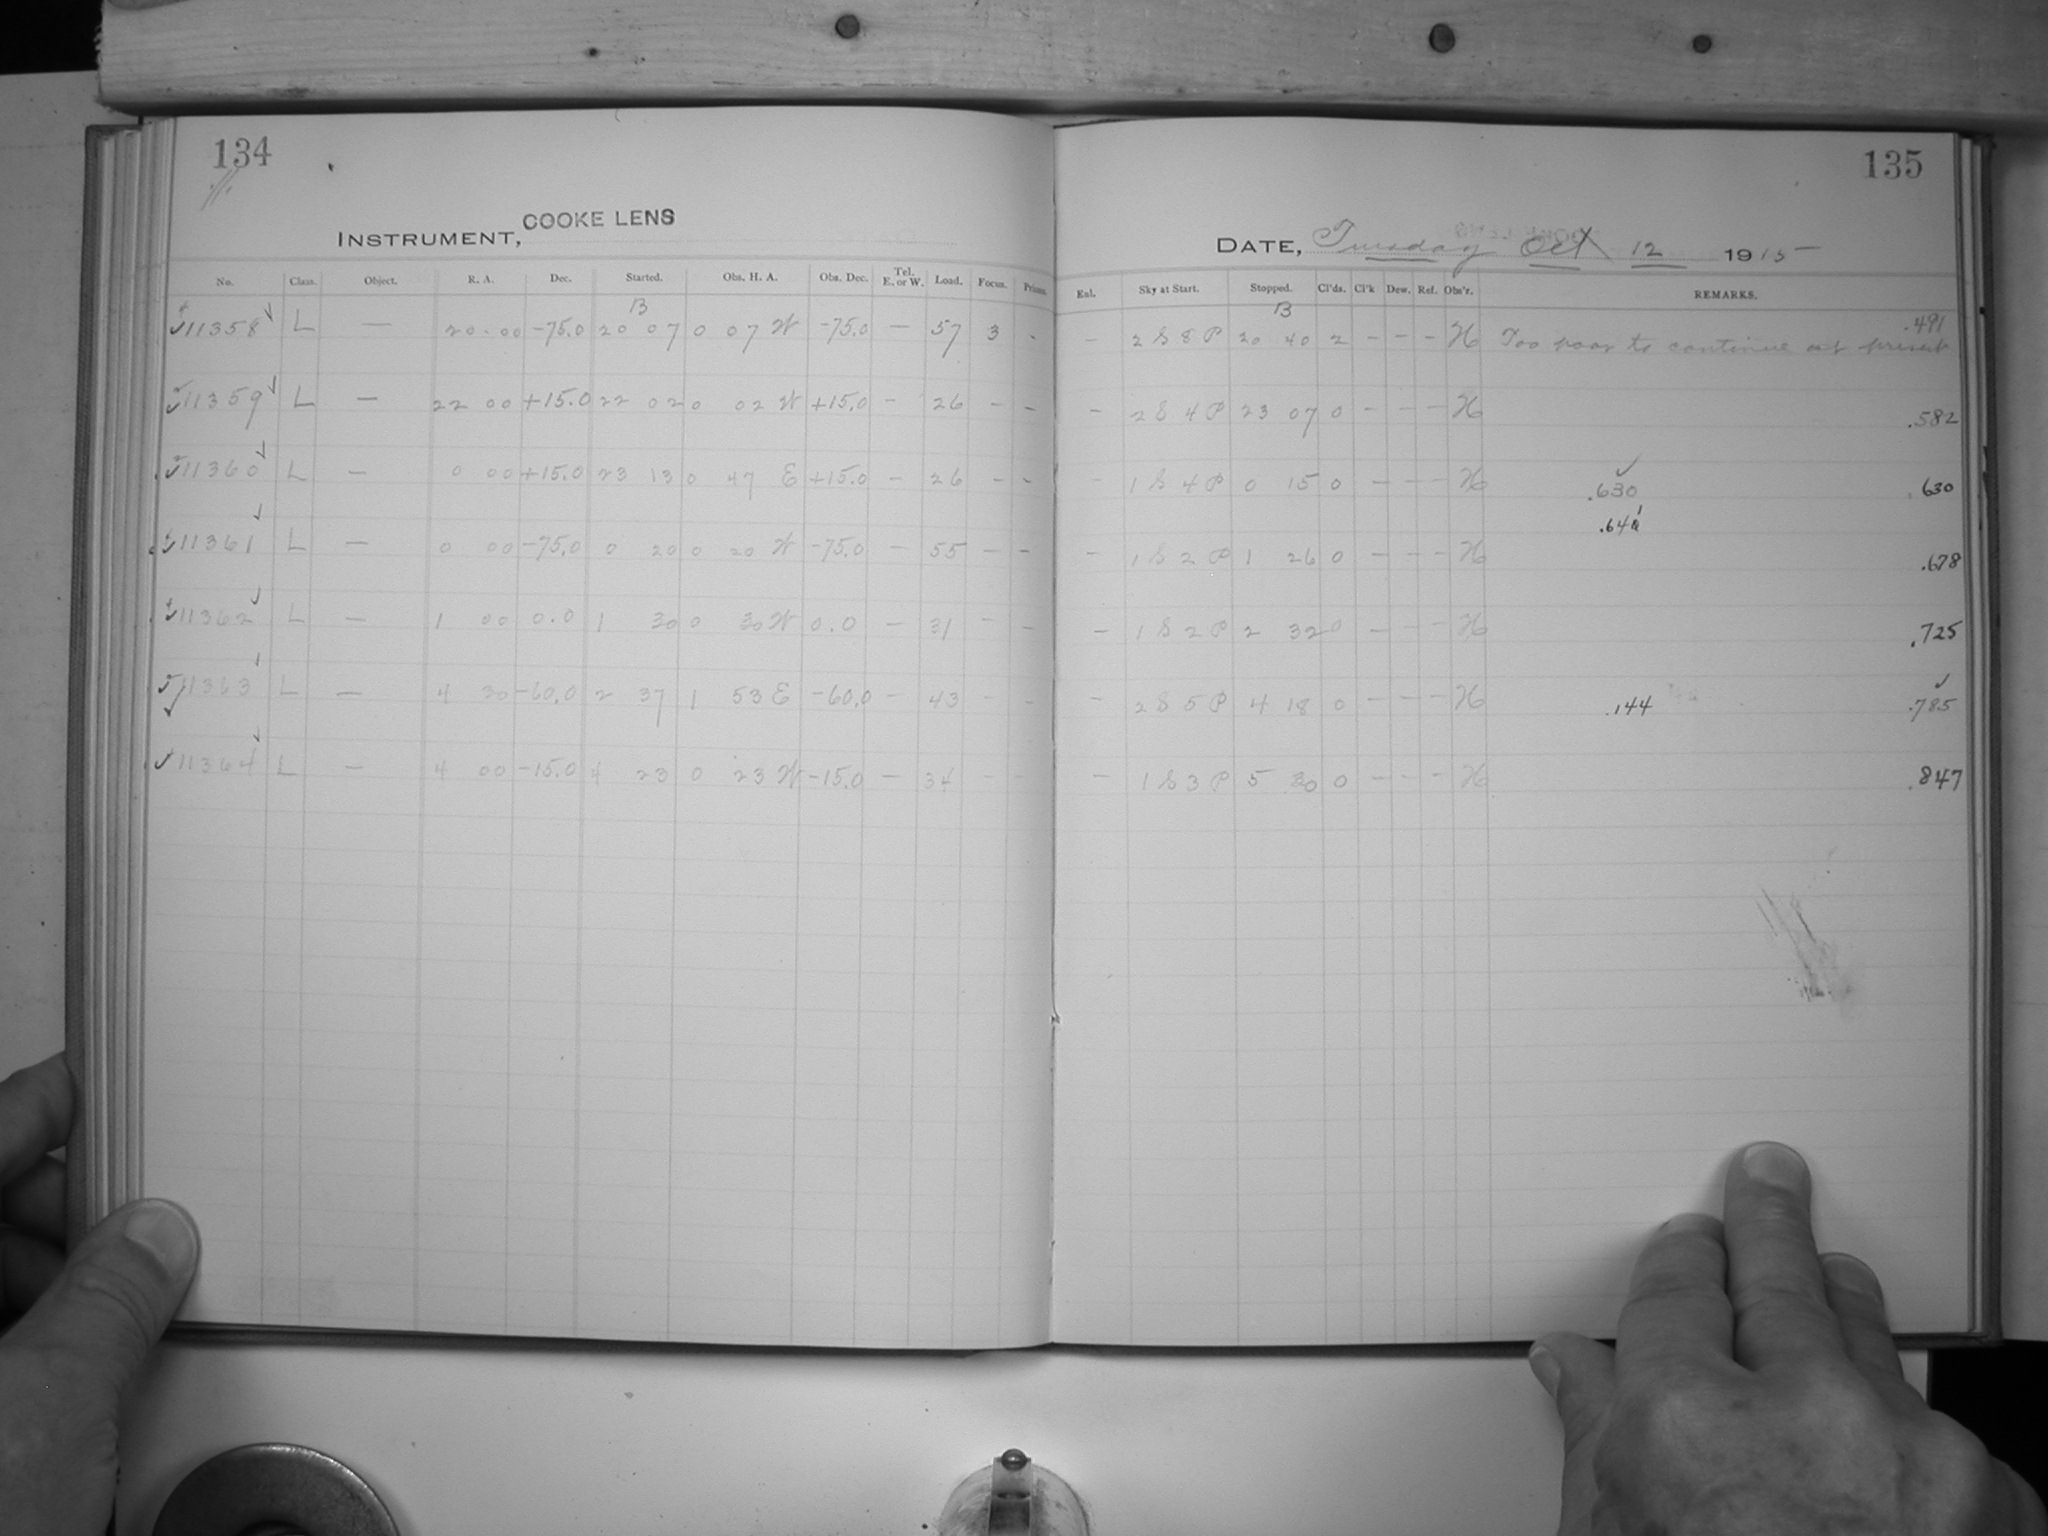 134
135
INSTRUMENT, COOKE LENS
DATE, Tuesday Oct 12 1915
No. Class. Object. R. A. Dec. Started. Obs. H. A. Obs. Dec. Tel. E. or W. Load. Focus. Prism. Enl. Sky at Start. Stopped. Cl'ds. Cl'k Dew. Ref. Obs'r. REMARKS.
B B
11358 L — 20 00 -75.0 20 07 0 07 W -75.0 — 57 3 - - 2 S 8 P 20 40 2 - - - H Too poor to continue at present .491
11359 L — 22 00 +15.0 22 02 0 02 W +15.0 - 26 - - - 2 S 4 P 23 07 0 - - - H .582
11360 L — 0 00 +15.0 23 13 0 47 E +15.0 - 26 - - - 1 S 4 P 0 15 0 - - - H .630 .630
.64
11361 L — 0 00 -75.0 0 20 0 20 W -75.0 - 55 - - - 1 S 2 P 1 26 0 - - - H .678
11362 L — 1 00 0.0 1 30 0 30 W 0.0 - 31 - - - 1 S 2 P 2 32 0 - - - H .725
11363 L — 4 30 -60.0 2 37 1 53 E -60.0 - 43 - - - 2 S 5 P 4 18 0 - - - H .144 .785
11364 L — 4 00 -15.0 4 23 0 23 W -15.0 - 34 - - - 1 S 3 P 5 30 0 - - - H .847